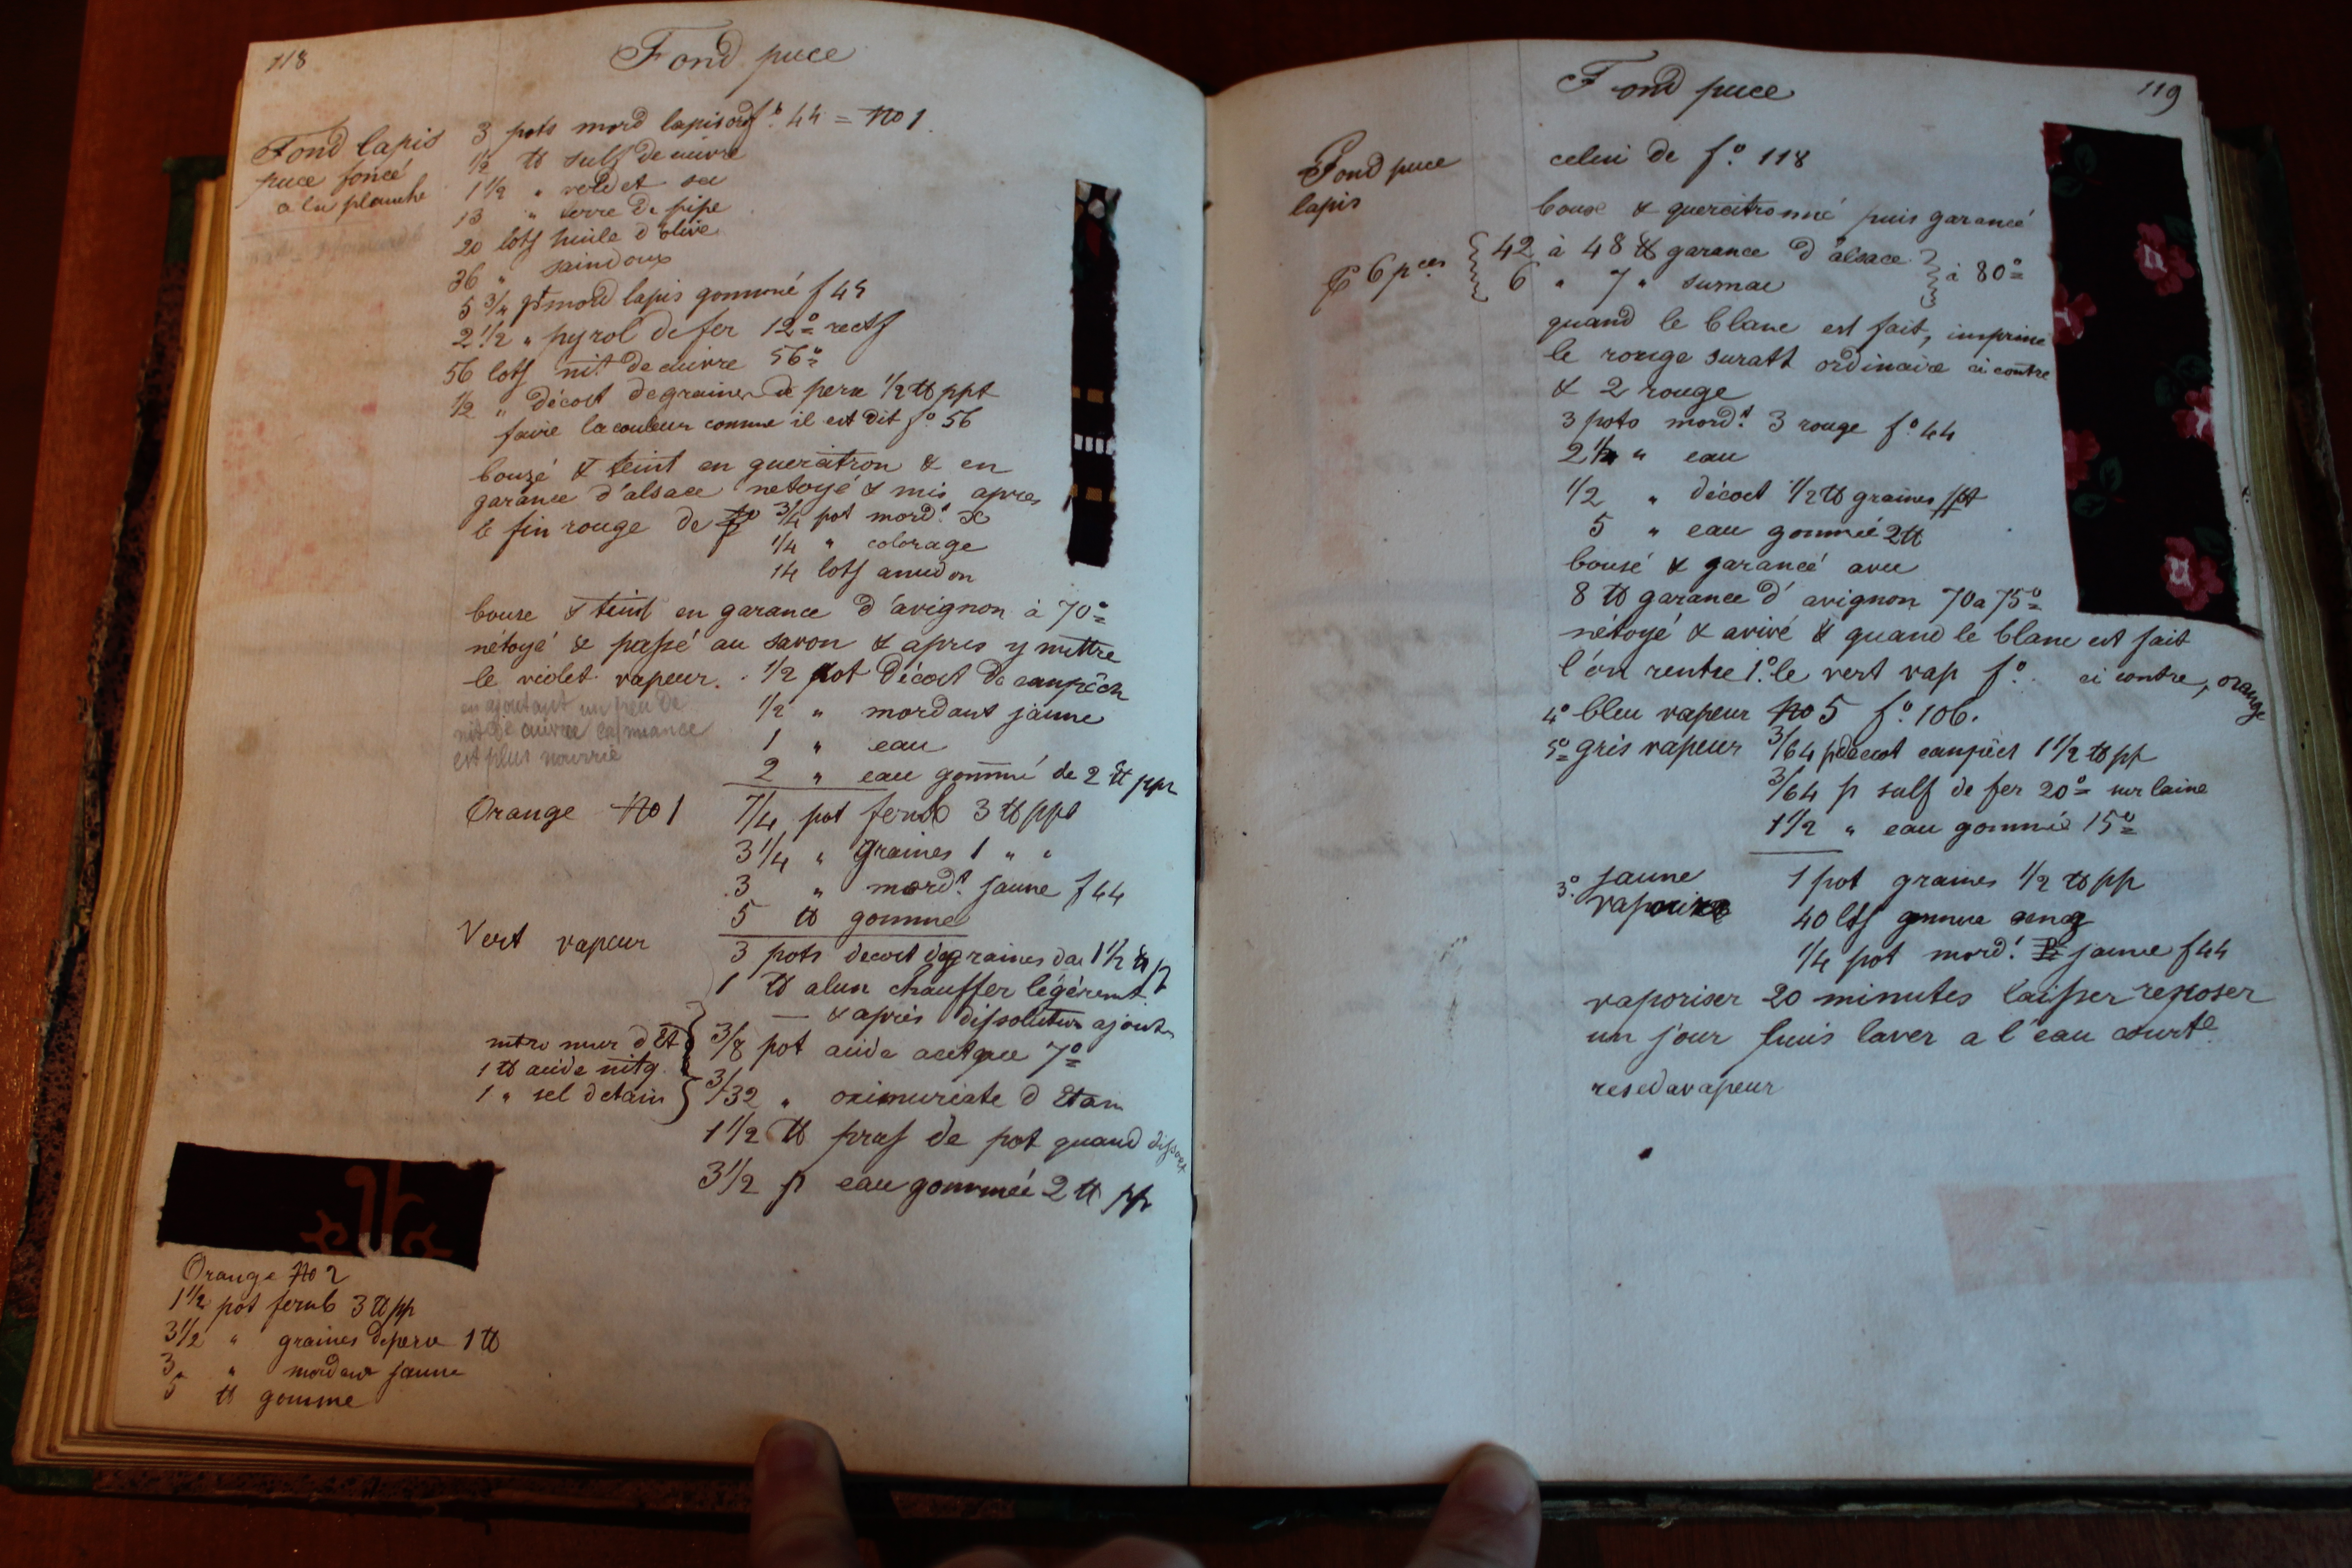 118
Fond puce
Fond lapis
puce foncé
a la planche
3 pots mord lapis ord f° 44 = No 1
1/2 ℔ sulf de cuivre
1 1/2 " verdet sec
13 " terre de pipe
20 lots huile d'olive
36 " saindoux
5 3/4 pt mord lapis gommé f 45
2 1/2 " pyrol de fer 12° rectf
56 lots nit de cuivre 56°
1/2 " décoct de graines de perse 1/2 ℔ ppt
faire la couleur comme il est dit f° 56
bouzé & teint en quercitron & en
garance d'alsace netoyé & mis apres
le fin rouge de 3/4 pot mordt
1/4 " colorage
14 lots amidon
bouse & teint en garance d'avignon à 70°
nétoyé & passé au savon & apres y mettre
le violet vapeur. 1/2 pot décoct de campêch
en ajoutant un peu de
nit de cuivre la nuance
est plus nourrie
1/2 " mordant jaune
1 " eau
2 " eau gommé de 2 ℔ ppt
Orange No 1
7/4 pot fernb 3 ℔ ppt
3 1/4 " graines 1 " "
3 " mordt jaune f 44
5 ℔ gomme
Vert vapeur
3 pots decoct de graines de 1 1/2 ℔ p
1 ℔ alun chauffer légéremt
— & après dissolution ajouter
nitro mur d Et
1 ℔ acide nitq
1 " sel detain
3/8 pot acide acetque 7°
3/32 " oximuriate d Etain
1 1/2 ℔ prus de pot quand dissout
3 1/2 p eau gommée 2 ℔ pp
Orange No 2
1 1/2 pot fernb 3 ℔ pp
3 1/2 " graines de perse 1 ℔
3 " mordant jaune
5 ℔ gomme
Fond puce
119
Fond puce
lapis
celui de f° 118
bouse & quercitronné puis garancé
6 pces 42 à 48 ℔ garance d'alsace
6 " 7 " sumac à 80°
quand le blanc est fait, imprimé
le rouge suratt ordinaire ci contre
& 2 rouge
3 pots mordt 3 rouge f° 44
2 1/2 " eau
1/2 " décoct 1/2 ℔ graines ppt
5 " eau gommée 2 ℔
bousé & garancé avec
8 ℔ garance d'avignon 70 a 75°
nétoyé & avivé & quand le blanc est fait
l'on rentre 1° le vert vap f° ci contre, orange
4° bleu vapeur No 5 f° 106.
5° gris vapeur 3/64 p décoct campêch 1 1/2 ℔ pp
3/64 p sulf de fer 20° sur laine
1 1/2 " eau gommée 15°
3° jaune
vapeur
1 pot graines 1/2 ℔ pp
40 lots gomme
1/4 pot mordt jaune f 44
vaporiser 20 minutes laisser reposer
un jour puis laver a l'eau courte
reseda vapeur